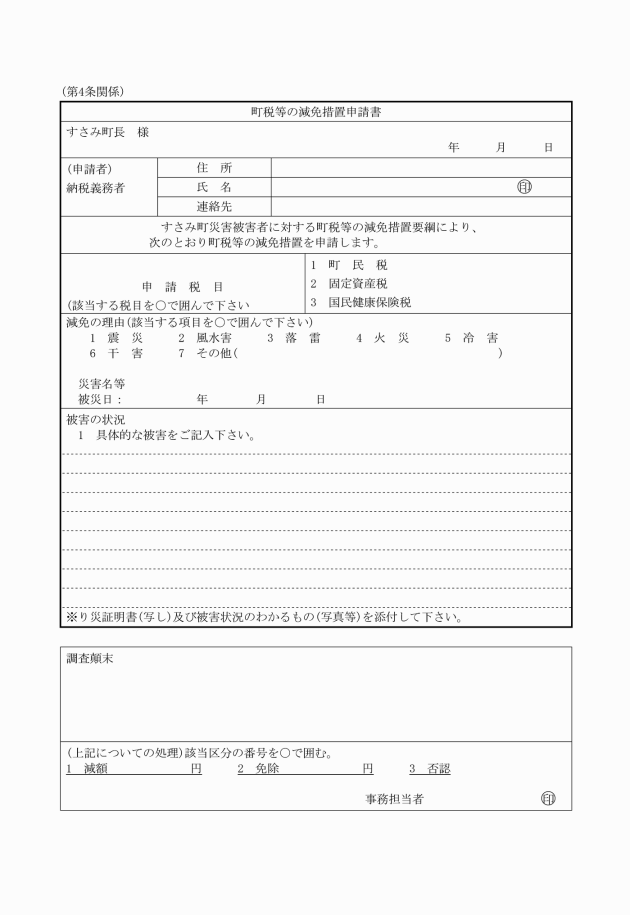 (第4条関係)
町税等の減免措置申請書
すさみ町長　様
年　　　月　　　日
(申請者)
納税義務者
住　所
氏　名　　　㊞
連絡先
すさみ町災害被害者に対する町税等の減免措置要綱により、
次のとおり町税等の減免措置を申請します。
申　請　税　目
(該当する税目を○で囲んで下さい
1　町　民　税
2　固定資産税
3　国民健康保険税
減免の理由(該当する項目を○で囲んで下さい)
1　震　災　　　2　風水害　　　3　落　雷　　　4　火　災　　　5　冷　害
6　干　害　　　7　その他(　　　　　　　　　　　　　　　　　　　　　　)
災害名等
被災日：　　　　　　年　　　　月　　　　日
被害の状況
1　具体的な被害をご記入下さい。
※り災証明書(写し)及び被害状況のわかるもの(写真等)を添付して下さい。
調査顛末
(上記についての処理)該当区分の番号を○で囲む。
1　減額　　　　　　　円　　　2　免除　　　　　　　円　　　3　否認
事務担当者　　　　　　　　　　㊞